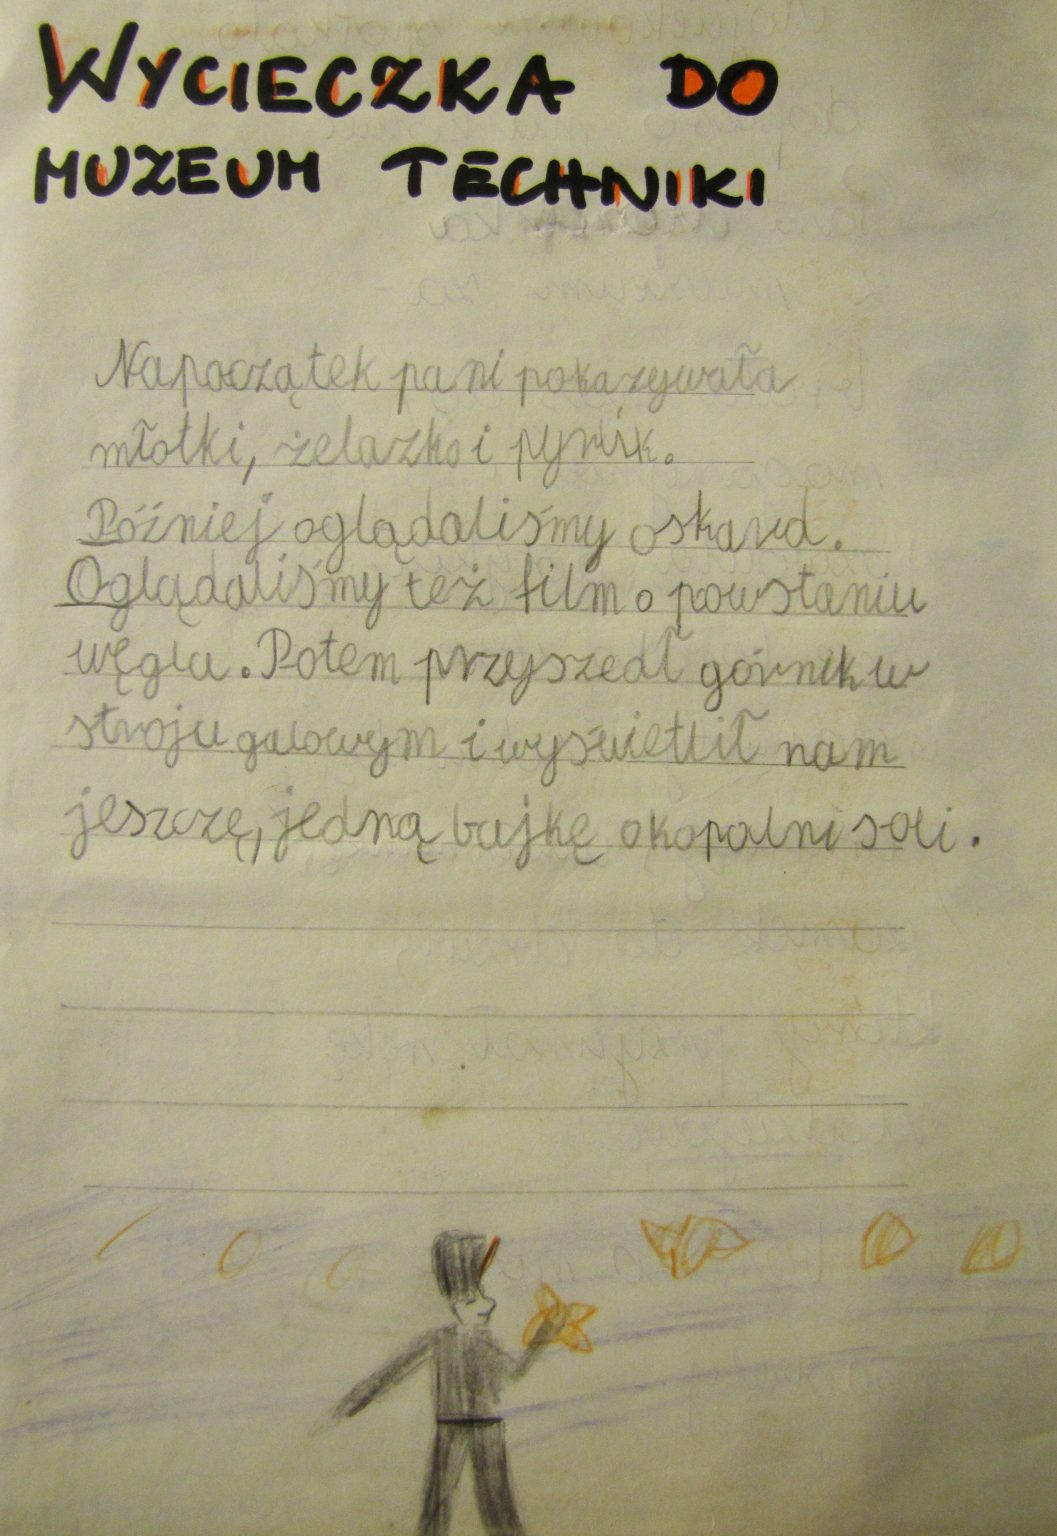 WYCIECZKA DO
MUZEUM TECHNIKI
Napoczątek pani pokazywała
młotki, żelazko i pyrlik.
Później oglądaliśmy oskard.
Oglądaliśmy też film o powstaniu
węgla. Potem przyszedł górnik w
stroju galowym i wyświetlił nam
jeszczę, jedną bajkę o kopalni soli.